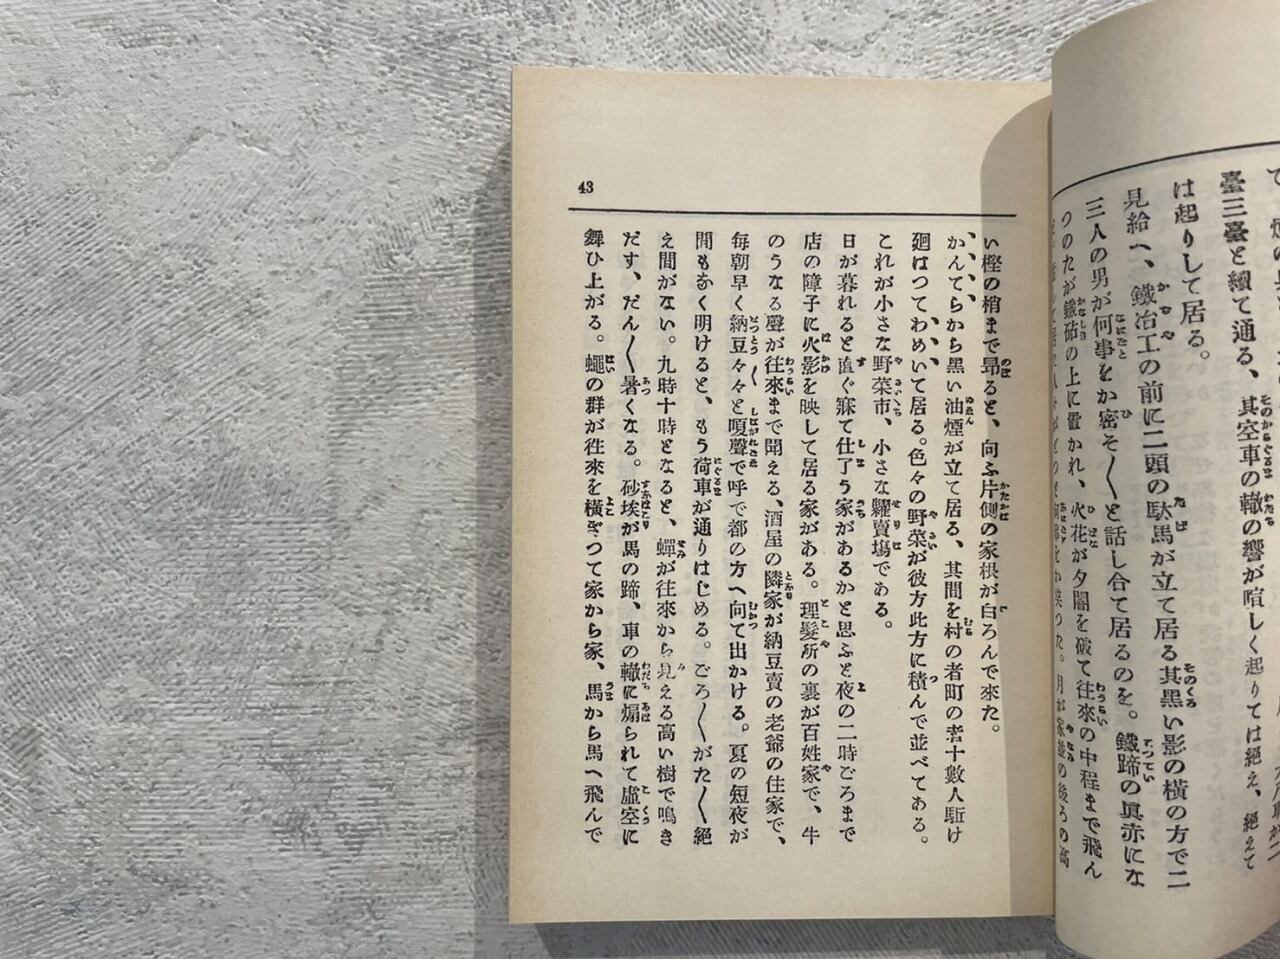 臺三臺と續て通る、其空車の轍の響が喧しく起りては絶え、絶えて
は起りして居る。
見給へ、鐵冶工の前に二頭の駄馬が立て居る其黑い影の横の方で二
三人の男が何事をか密そ〱と話し合て居るのを。鐵蹄の眞赤にな
つのたが鐵砧の上に置かれ、火花が夕闇を破て往來の中程まで飛ん
月が家並の後ろの高
い樫の梢まで昇ると、向ふ片側の家根が白ろんで來た。
かんてらから黑い油煙が立て居る、其間を村の者町の者十數人駈け
廻はつてわめいて居る。色々の野菜が彼方此方に積んで並べてある。
これが小さな野菜市、小さな糶賣塲である。
日が暮れると直ぐ寐て仕了う家があるかと思ふと夜の二時ごろまで
店の障子に火影を映して居る家がある。理髮所の裏が百姓家で、牛
のうなる聲が往來まで聞える、酒屋の隣家が納豆賣の老爺の住家で、
毎朝早く納豆々々と嗄聲で呼で都の方へ向て出かける。夏の短夜が
間もなく明けると、もう荷車が通りはじめる。ごろ〱がた〱絶
え間がない。九時十時となると、蟬が往來から見える高い樹で鳴き
だす、だん〱暑くなる。砂埃が馬の蹄、車の轍に煽られて虚空に
舞ひ上がる。蠅の群が往來を横ぎつて家から家、馬から馬へ飛んで
43